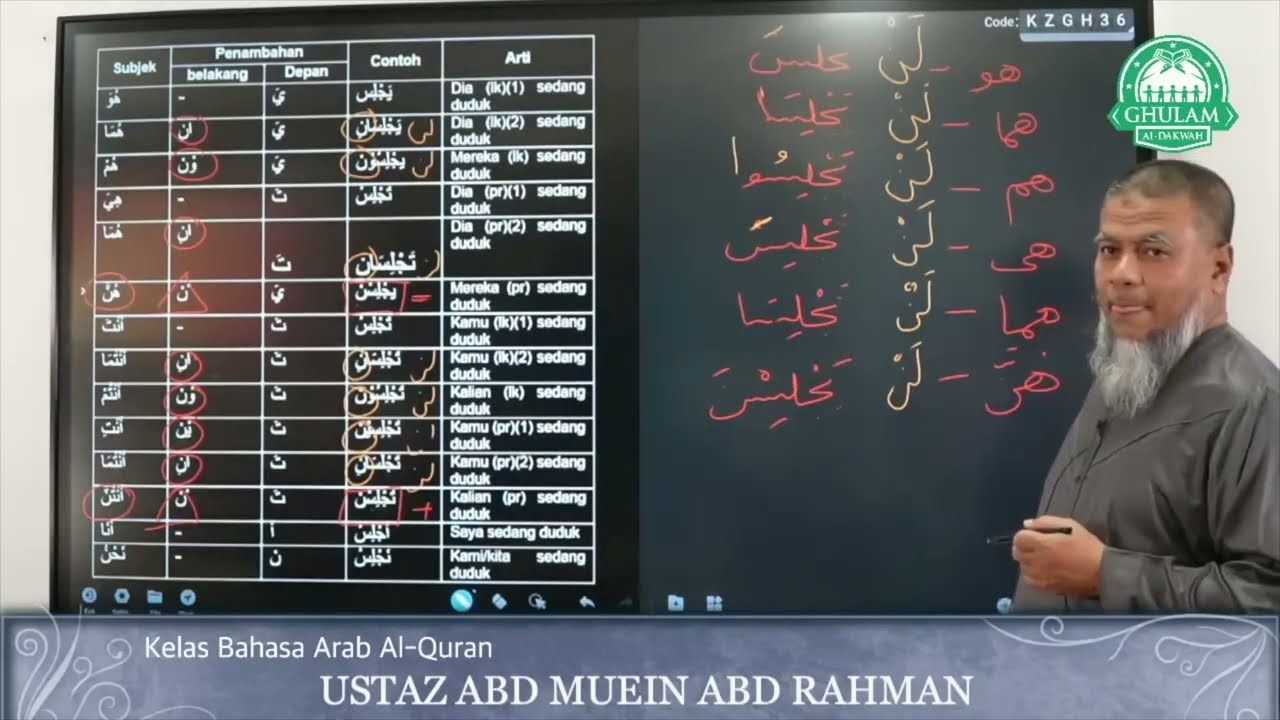 Code: KZGH36
GHULAM
Al-DAKWAH
Subjek Penambahan Contoh Arti
belakang Depan
هُوَ - يَ يَجْلِسُ Dia (lk)(1) sedang duduk
هُمَا انِ يَ يَجْلِسَانِ Dia (lk)(2) sedang duduk
هُمْ وْنَ يَ يَجْلِسُوْنَ Mereka (lk) sedang duduk
هِيَ - تَ تَجْلِسُ Dia (pr)(1) sedang duduk
هُمَا انِ تَ تَجْلِسَانِ Dia (pr)(2) sedang duduk
هُنَّ نَ يَ يَجْلِسْنَ Mereka (pr) sedang duduk
أَنْتَ - تَ تَجْلِسُ Kamu (lk)(1) sedang duduk
أَنْتُمَا انِ تَ تَجْلِسَانِ Kamu (lk)(2) sedang duduk
أَنْتُمْ وْنَ تَ تَجْلِسُوْنَ Kalian (lk) sedang duduk
أَنْتِ يْنَ تَ تَجْلِسِيْنَ Kamu (pr)(1) sedang duduk
أَنْتُمَا انِ تَ تَجْلِسَانِ Kamu (pr)(2) sedang duduk
أَنْتُنَّ نَ تَ تَجْلِسْنَ Kalian (pr) sedang duduk
أَنَا - أَ أَجْلِسُ Saya sedang duduk
نَحْنُ - نَ نَجْلِسُ Kami/kita sedang duduk
هو - لَنْ يجلسَ
هما - لَنْ يَجْلِسَا
هم - لَنْ يَجْلِسُوا
هي - لَنْ تَجْلِسَ
هما - لَنْ تَجْلِسَا
هنَّ - لَنْ يَجْلِسْنَ
Kelas Bahasa Arab Al-Quran
USTAZ ABD MUEIN ABD RAHMAN